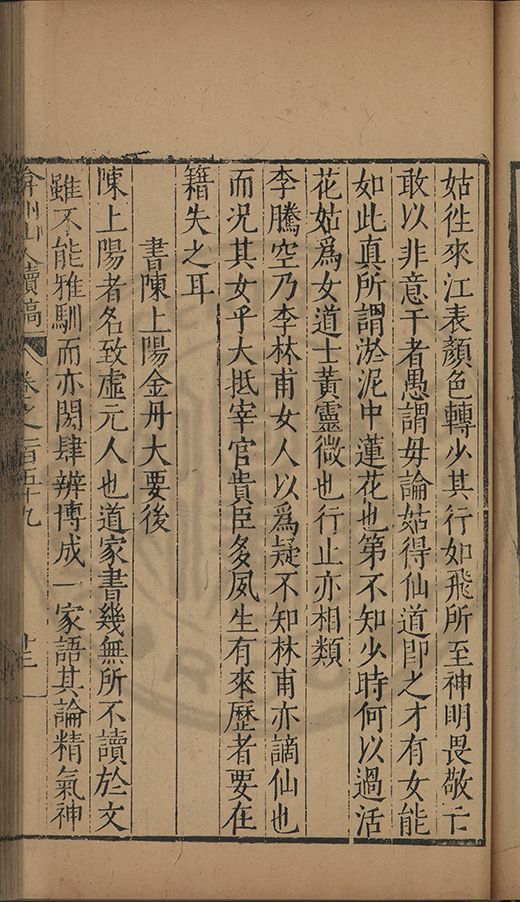 姑徃來江表顏色轉少其行如飛所至神明畏敬亡
敢以非意干者愚謂毋論姑得仙道卽之才有女能
如此真所謂淤泥中蓮花也第不知少時何以過活
花姑爲女道士黃靈微也行止亦相類
李騰空乃李林甫女人以爲疑不知林甫亦謫仙也
而况其女乎大抵宰官貴臣多夙生有來歷者要在
籍失之耳
書陳上陽金丹大要後
陳上陽者名致虛元人也道家書幾無所不讀於文
雖不能雅馴而亦閎肆辨博成一家語其論精氣神
弇州山人續稿 卷之一百五十九 十三